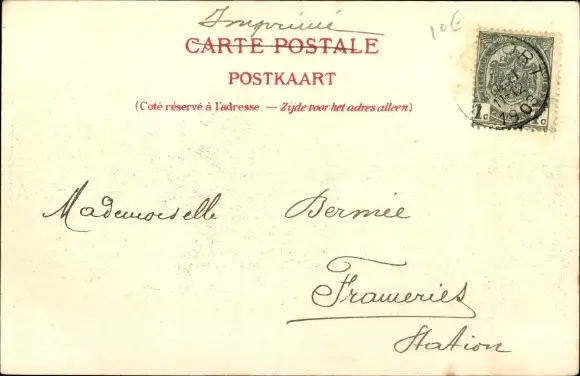 Imprimé
10€
CARTE POSTALE
POSTKAART
(Coté réservé à l'adresse. — Zijde voor het adres alleen)
1c 1c
Mademoiselle Bermée
Frameries
Station